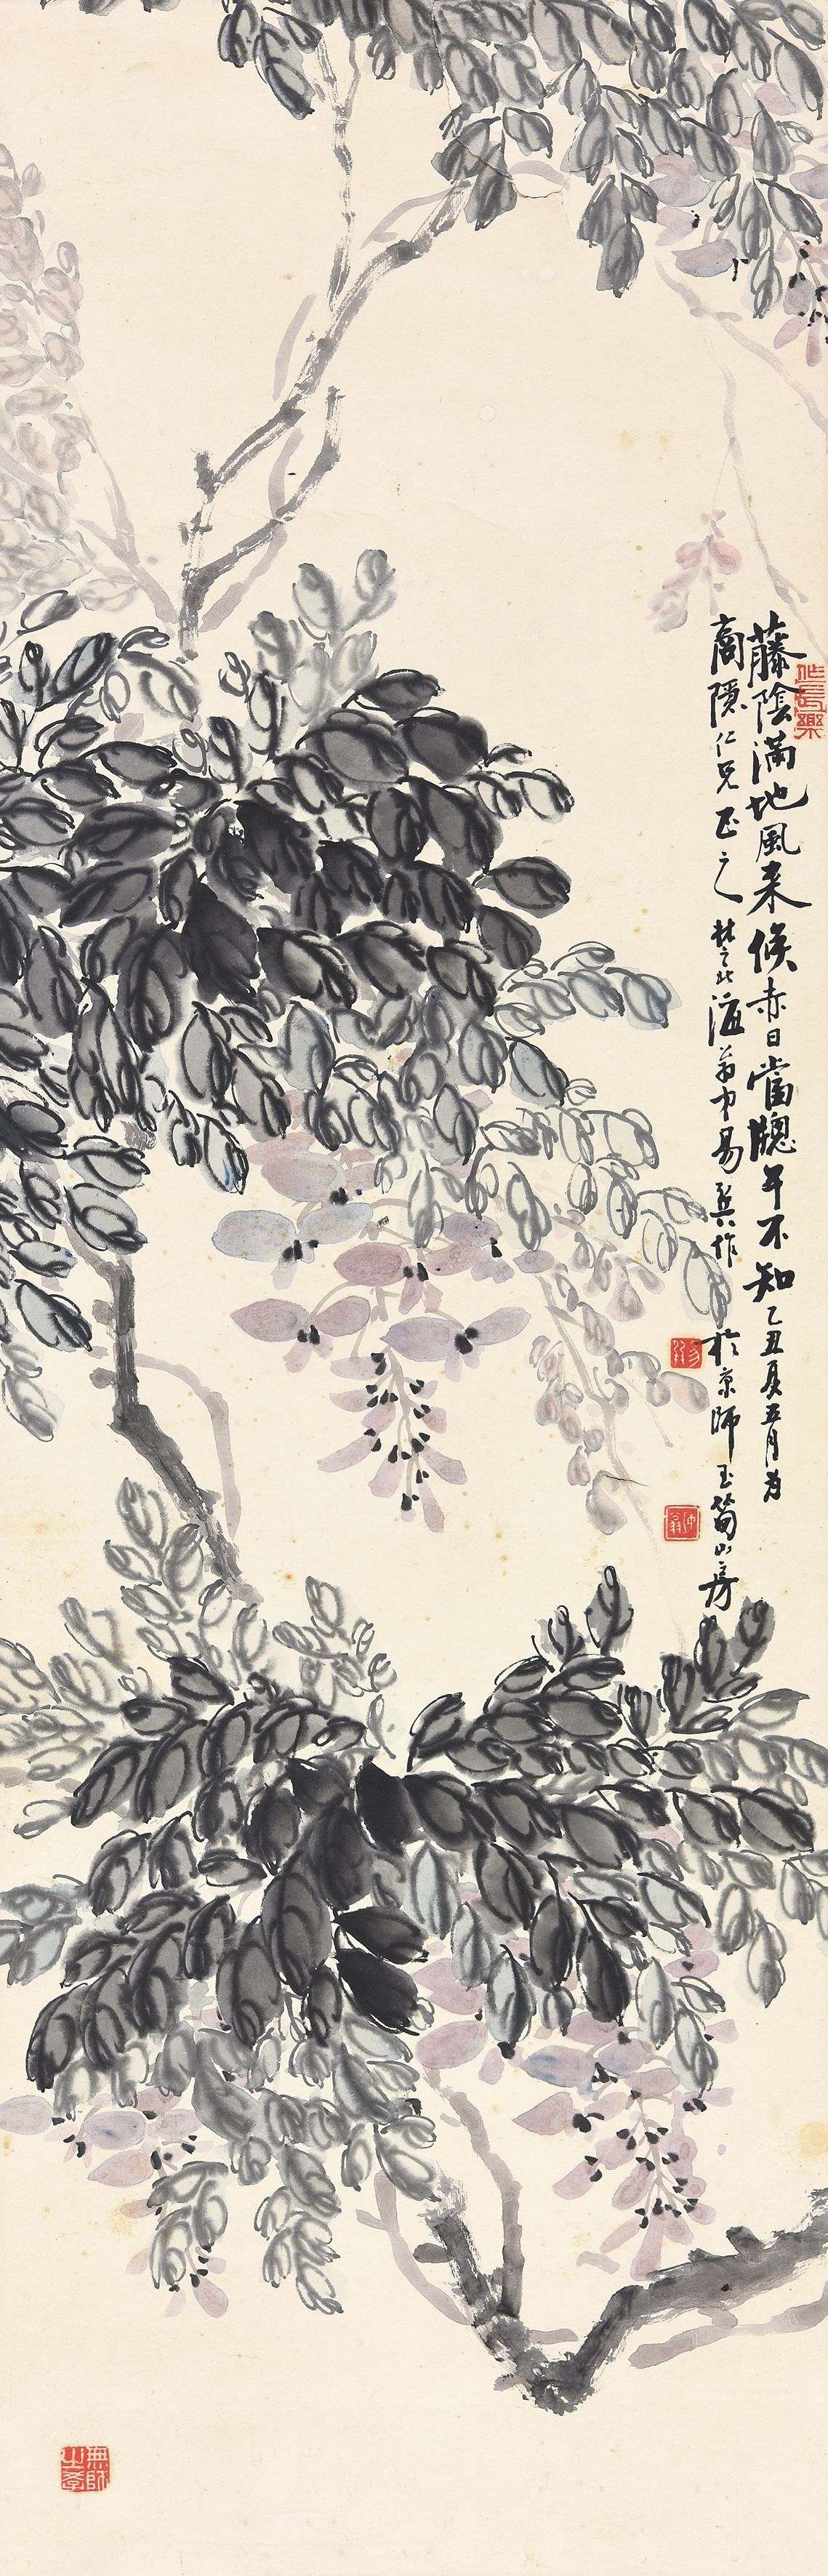 藤陰滿地風來候赤日當牕午不知乙丑夏五月為
商隱仁兄正之 作於京師玉筍山房
無師
之學